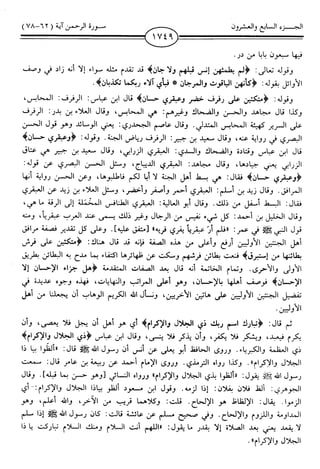 الجـزء السـابع والعشـرون
سـورة الرحمن آية (٦٢-٧٨)
١٧٤٩
فيها سبعون بابا من در.
وقوله تعالى: ﴿لم يطمثهن إنس قبلهم ولا جان﴾ قد تقدم مثله سواء إلا أنه زاد في وصف
الأوائل بقوله: ﴿كأنهن الياقوت والمرجان * فبأي آلاء ربكما تكذبان﴾.
وقوله: ﴿متكئين على رفرف خضر وعبقري حسان﴾ قال ابن عباس: الرفرف: المحابس،
وكذا قال مجاهد والحسن والضحاك وغيرهم: هي المحابس، وقال العلاء بن بدر: الرفرف
على السرير كهيئة المحابس المتدلي. وقال عاصم الجحدري: يعني الوسائد وهو قول الحسن
البصري في رواية عنه، وقال سعيد بن جبير: الرفرف رياض الجنة. وقوله: ﴿وعبقري حسان﴾
قال ابن عباس وقتادة والضحاك والسدي: العبقري الزرابي، وقال سعيد بن جبير هي عتاق
الزرابي يعني جيادها، وقال مجاهد: العبقري الديباج، وسئل الحسن البصري عن قوله:
﴿وعبقري حسان﴾ فقال: هي بسط أهل الجنة لا أبا لكم فاطلبوها، وعن الحسن رواية أنها
المرافق. وقال زيد بن أسلم: العبقري أحمر وأصفر وأخضر، وسئل العلاء بن زيد عن العبقري
فقال: البسط أسفل من ذلك. وقال أبو العالية: العبقري الطنافس المخملة إلى الرقة ما هي،
وقال الخليل بن أحمد: كل شيء نفيس من الرجال وغير ذلك يسمى عند العرب عبقرياً، ومنه
قول النبي ﷺ في عمر: «فلم أر عبقرياً يفري فريه» [متفق عليه]. وعلى كل تقدير فصفة مرافق
أهل الجنتين الأوليين أرفع وأعلى من هذه الصفة فإنه قد قال هناك: ﴿متكئين على فرش
بطائنها من إستبرق﴾ فنعت بطائن فرشهم وسكت عن ظهائرها اكتفاء بما مدح به البطائن بطريق
الأولى والأحرى. وتمام الخاتمة أنه قال بعد الصفات المتقدمة ﴿هل جزاء الإحسان إلا
الإحسان﴾ فوصف أهلها بالإحسان، وهو أعلى المراتب والنهايات، فهذه وجوه عديدة في
تفضيل الجنتين الأوليين على هاتين الأخريين، ونسأل الله الكريم الوهاب أن يجعلنا من أهل
الأوليين.
ثم قال: ﴿تبارك اسم ربك ذي الجلال والإكرام﴾ أي هو أهل أن يجل فلا يعصى، وأن
يكرم فيعبد، ويشكر فلا يكفر، وأن يذكر فلا ينسى، وقال ابن عباس ﴿ذي الجلال والإكرام﴾
ذي العظمة والكبرياء. وروى الحافظ أبو يعلى عن أنس أن رسول الله ﷺ قال: «ألظوا بيا ذا
الجلال والإكرام». وكذا رواه الترمذي. وروى الإمام أحمد عن ربيعة بن عامر قال: سمعت
رسول الله ﷺ يقول: «ألظوا بذي الجلال والإكرام» ورواه النسائي [وهو حسن بما قبله]. وقال
الجوهري: ألظ فلان بفلان: إذا لزمه. وقول ابن مسعود ألظوا بياذا الجلال والإكرام: أي
الزموا. يقال: الإلظاظ هو الإلحاح. قلت: وكلاهما قريب من الآخر، والله أعلم، وهو
المداومة واللزوم والإلحاح. وفي صحيح مسلم عن عائشة قالت: كان رسول الله ﷺ إذا سلم
لا يقعد يعني بعد الصلاة إلا بقدر ما يقول: «اللهم أنت السلام ومنك السلام تباركت يا ذا
الجلال والإكرام».